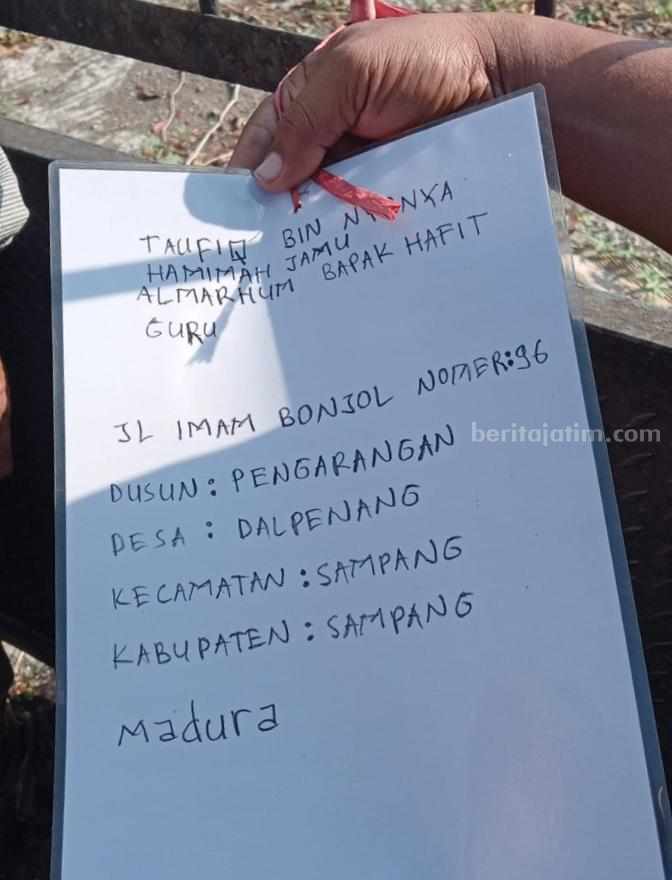 TAUFIQ BIN
HAMIMAH JAMU
ALMARHUM BAPAK HAFIT
GURU
JL IMAM BONJOL NOMER:96
DUSUN: PENGARANGAN
DESA : DALPENANG
KECAMATAN : SAMPANG
KABUPATEN : SAMPANG
Madura
beritajatim.com